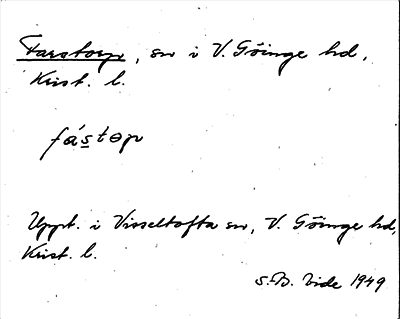 Farstorp, sn i V. Göinge hd,
Krist. l.
fás̲tɵp
Uppt. i Visseltofta sn, V. Göinge hd,
Krist. l.
S.B. Vide 1949